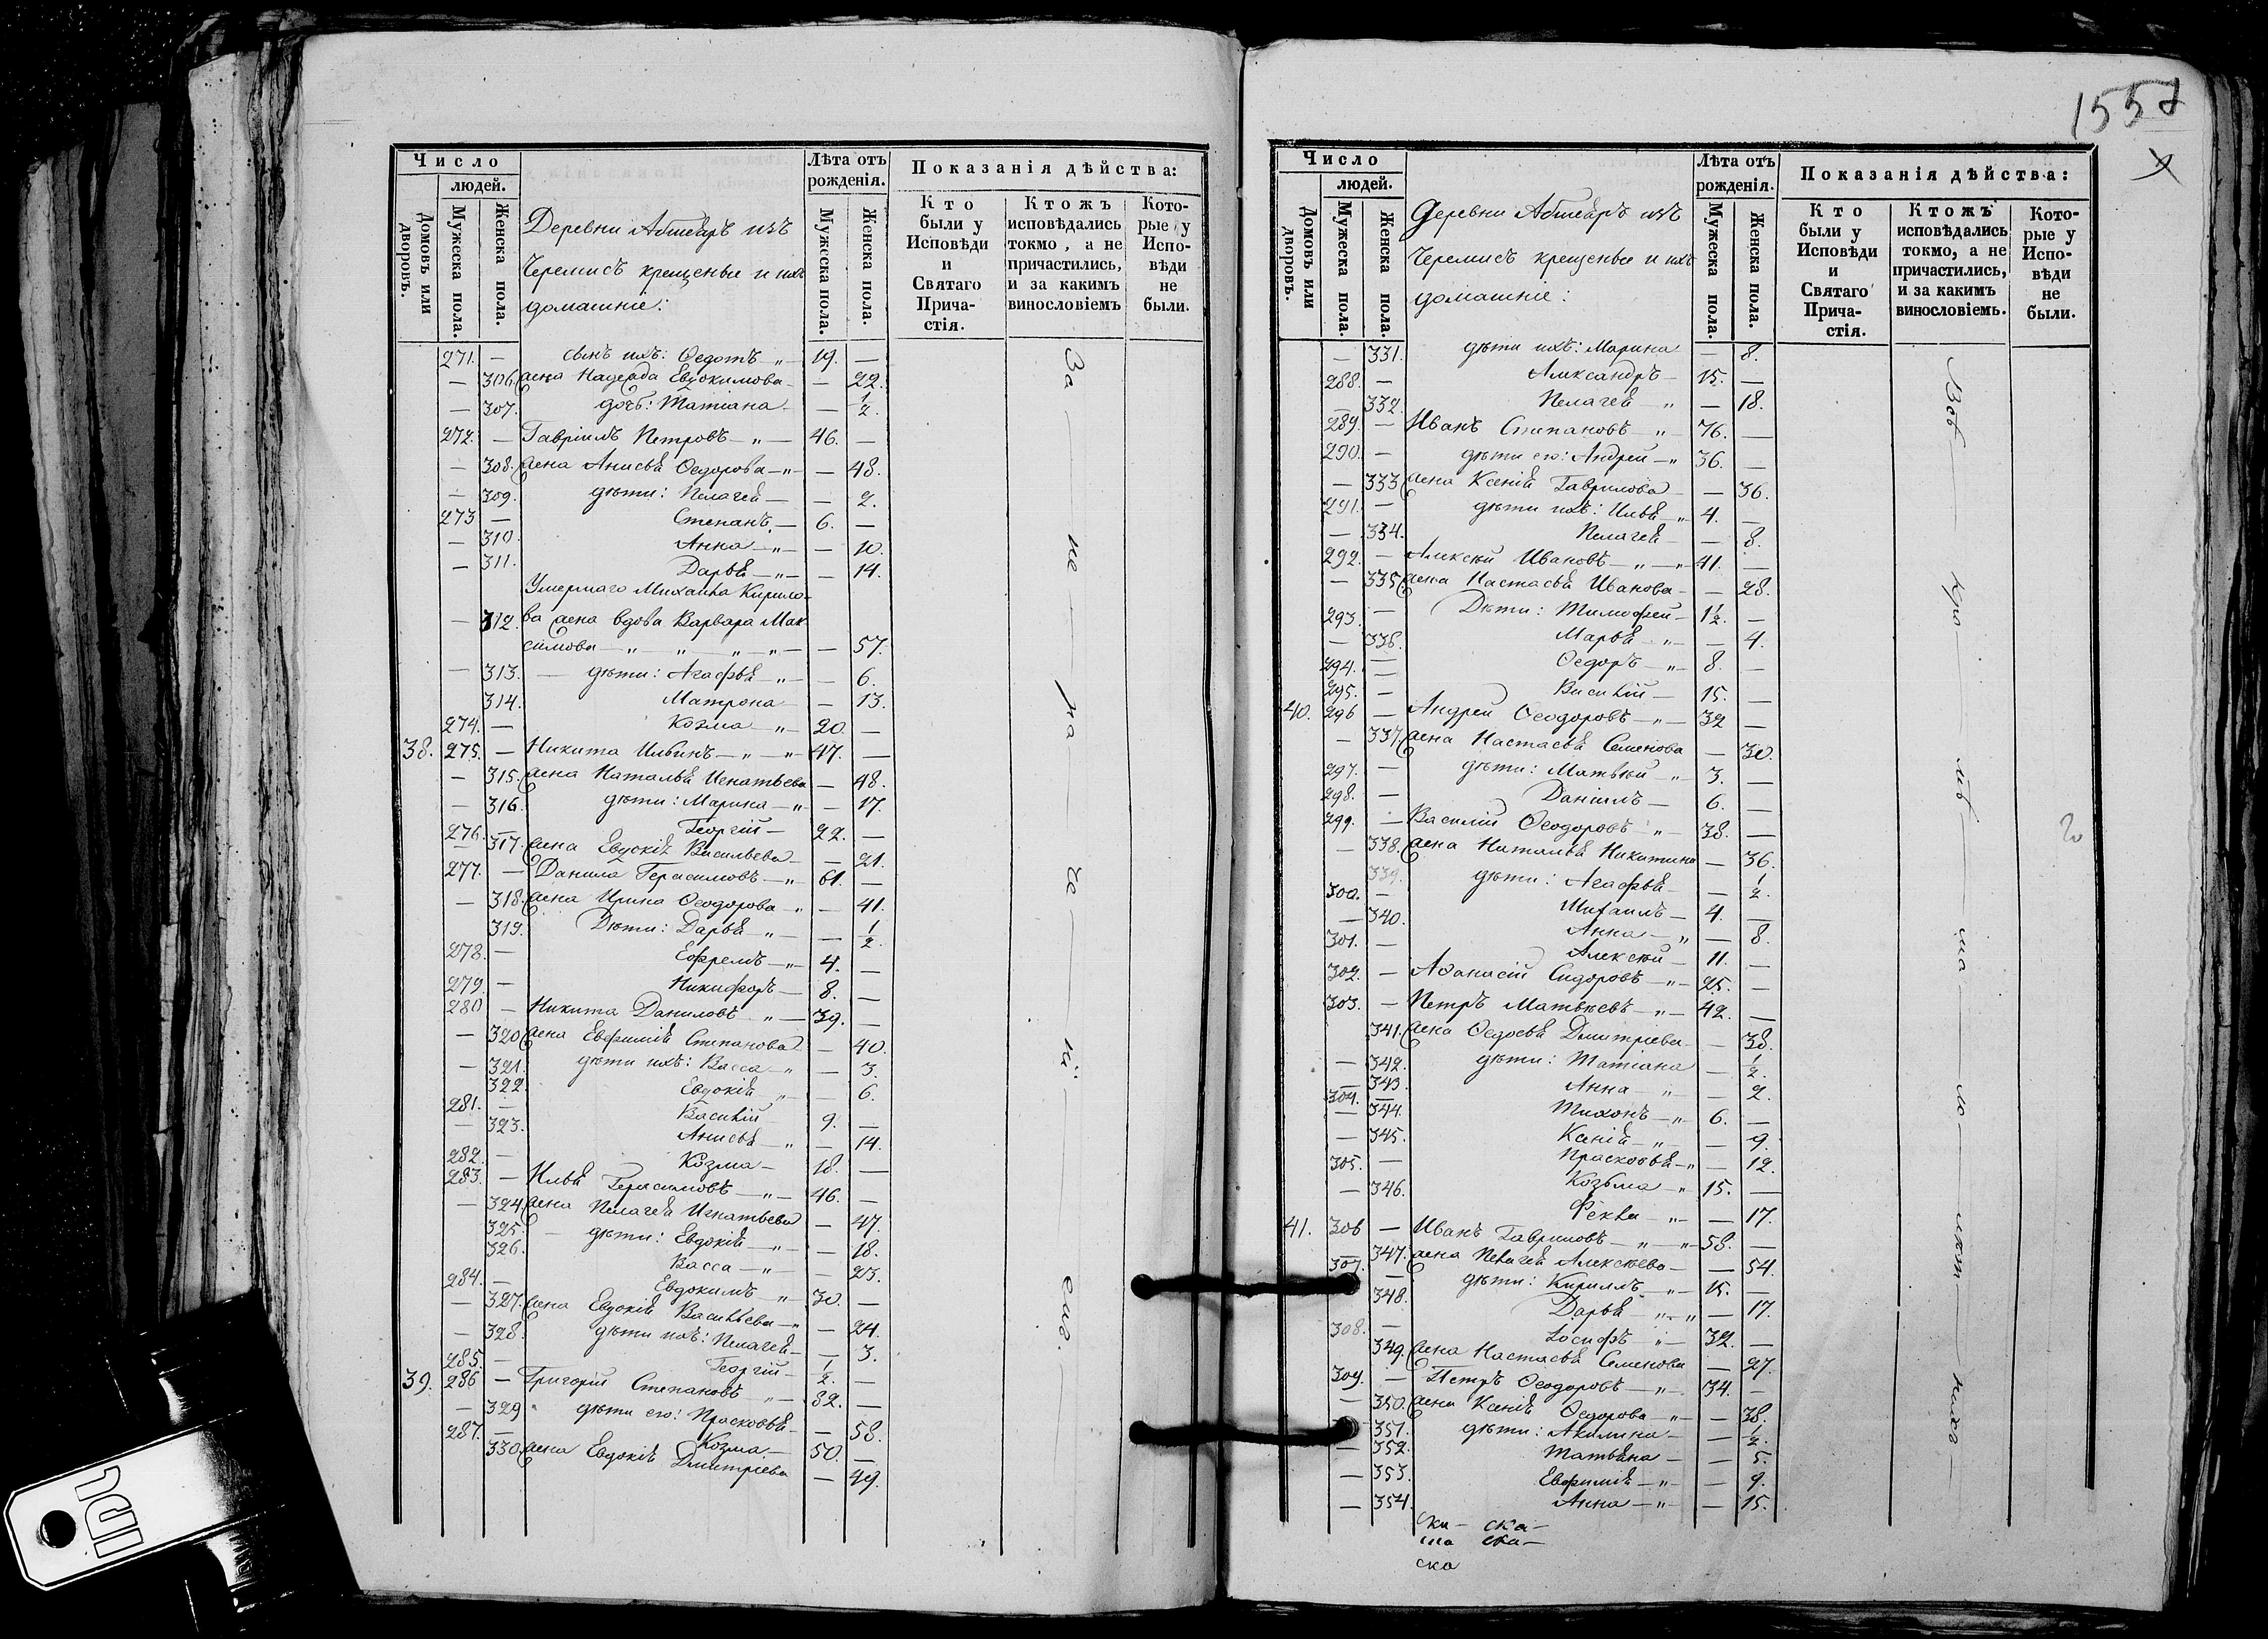 1557
Число
людей.
Домовъ или дворовъ.
Мужеска пола.
Женска пола.
Деревни Абшеаръ изъ
Черемисъ крещеные и ихъ
домашніе:
Лѣта отъ рожденія.
Мужеска пола.
Женска пола.
Показанія дѣйства:
Кто были у Исповѣди и Святаго Прича-стія.
Ктожъ исповѣдались токмо, а не причастились, и за какимъ винословіемъ
Кото-рые у Испо-вѣди не были.
271. — сынъ ихъ: Ѳедотъ „ — 19. —
— 306. жена Надежда Евдокимова — — 22.
— 307. дочь: Татіана — — 1/2.
272. — Гавріилъ Петровъ — „ — 46. —
— 308. жена Анисья Ѳедорова — „ — — 48.
— 309. дѣти: Пелагея — — 2.
273 — Степанъ — 6. —
— 310. Анна — „ — — 10.
— 311. Дарья — „ — — 14.
Умершаго Михаила Кирило-
— 312. ва жена вдова Варвара Мак-
симова — „ „ „ — „ — — 57.
— 313. — дѣти: Агафья — „ — — 6.
314. Матрона — — 13.
274. — Козма — „ 20. —
38. 275. — Никита Ильинъ — „ — „ — 47. —
— 315. жена Наталья Игнатьева — 48.
— 316. дѣти: Марина — „ — — 17.
276. — Георгій — 22. —
— 317. жена Евдокія Васильева — — 21.
277. — Данила Герасимовъ — „ 61. —
— 318. жена Ирина Ѳеодорова „ — 41.
319. Дѣти: Дарья — „ — — 1/2.
278. — Ефремъ — „ — 4. —
279. — Никифоръ — 8. —
280 — Никита Даниловъ „ — 39. —
— 320 жена Евфимія Степанова — 40.
— 321. дѣти ихъ: Васса — „ — 3.
322. Евдокія „ — — 6.
281. — Василій — 9. —
— 323. Анисья — „ — 14.
282. — Козма — 18. —
283. — Илья Герасимовъ — „ — 46. —
— 324. жена Пелагея Игнатьева — 47.
325. — дѣти: Евдокія — „ — — 18.
326. Васса — „ — — 23.
284. — Евдокимъ „ — 30. —
— 327. жена Евдокія Васильева — „ — 24.
— 328. дѣти ихъ: Пелагея — — 3.
285. — Георгій — 1/2. —
39. 286 — Григорій Степановъ „ — 82. —
— 329 дѣти его: Прасковья — — 58.
287. — Козма — 50. —
330. жена Евдокія Дмитріева — 49.
За — не — — че — ні —
Число
людей.
Домовъ или дворовъ.
Мужеска пола.
Женска пола.
Деревни Абшеаръ изъ
Черемисъ крещеные и ихъ
домашніе:
Лѣта отъ рожденія.
Мужеска пола.
Женска пола.
Показанія дѣйства:
Кто были у Исповѣди и Святаго Прича-стія.
Ктожъ исповѣдались токмо, а не причастились, и за какимъ винословіемъ.
Кото-рые у Испо-вѣди не были.
— 331. дѣти ихъ: Марина — 8.
288. — Александръ — 15. —
— 332. Пелагея „ — 18.
289. — Иванъ Степановъ „ — 76. —
290. — дѣти его: Андрей — „ 36. —
— 333 жена Ксенія Гаврилова — — 36.
291. — дѣти ихъ: Илья „ 4. —
— 334. Пелагея — — 8.
292. — Алексѣй Ивановъ — „ — „ 41. —
— 335. жена Настасья Иванова — — 28.
293. — Дѣти: Тимофей — 1 1/2. —
— 336. Марья „ — — 4.
294. — Ѳедоръ — „ 8. —
295. — Василій — 15. —
40. 296 — Андрей Ѳеодоровъ — „ — 32 —
— 337. жена Настасья Семенова — 30.
297. — дѣти: Матвѣй — „ 3. —
298. — Даніилъ — 6. —
299. — Василій Ѳеодоровъ „ — 38. —
— 338. жена Наталья Никитина — 36.
339. дѣти: Агафья — — 1/2.
300. — Михаилъ — 4. —
— 340. Анна — „ — 8.
301. — Алексѣй — 11. —
302. — Аѳанасій Сидоровъ — „ — 25. —
303. — Петръ Матвѣевъ — „ — 42. —
341. жена Ѳедосья Дмитріева — — 38.
— 342. дѣти: Татіана — 1/2.
— 343. Анна „ — 2.
304. — Тихонъ — „ 6. —
— 344.
— 345. Ксенія — „ — — 9.
305. — Прасковья — „ — 12.
— 346. Козьма — „ 15. —
Фекла — „ — — 17.
41. 306 — Иванъ Гавриловъ — „ — „ 58. —
— 347. жена Пелагея Алексѣева — — 54.
307. — дѣти: Кириллъ — „ — 15. —
348. Дарья — „ — „ — 17.
308. — Іосифъ „ — 32. —
349. жена Настасья Семенова — 27.
309. — Петръ Ѳеодоровъ — „ — 34. —
— 350. жена Ксенія Ѳедорова „ — — 38.
351. дѣти: Акилина — — 1/2.
— 352. Татьяна — — 5.
— 353. Евфимія — „ — — 9.
— 354. Анна — „ — — 15.
ска — ска —
ска ска —
ска